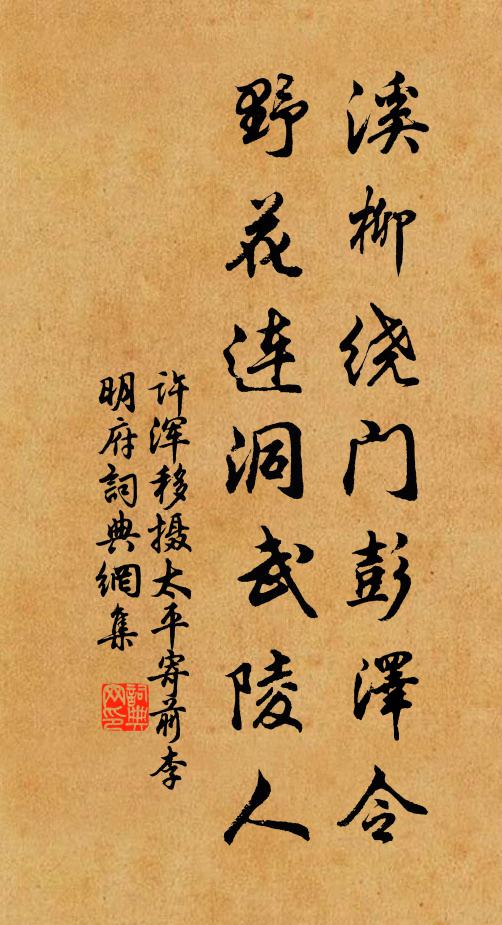 溪柳绕门彭澤令
野花连洞武陵人
许浑移摄太平寄前李
明府詞典網集
詞典
网印